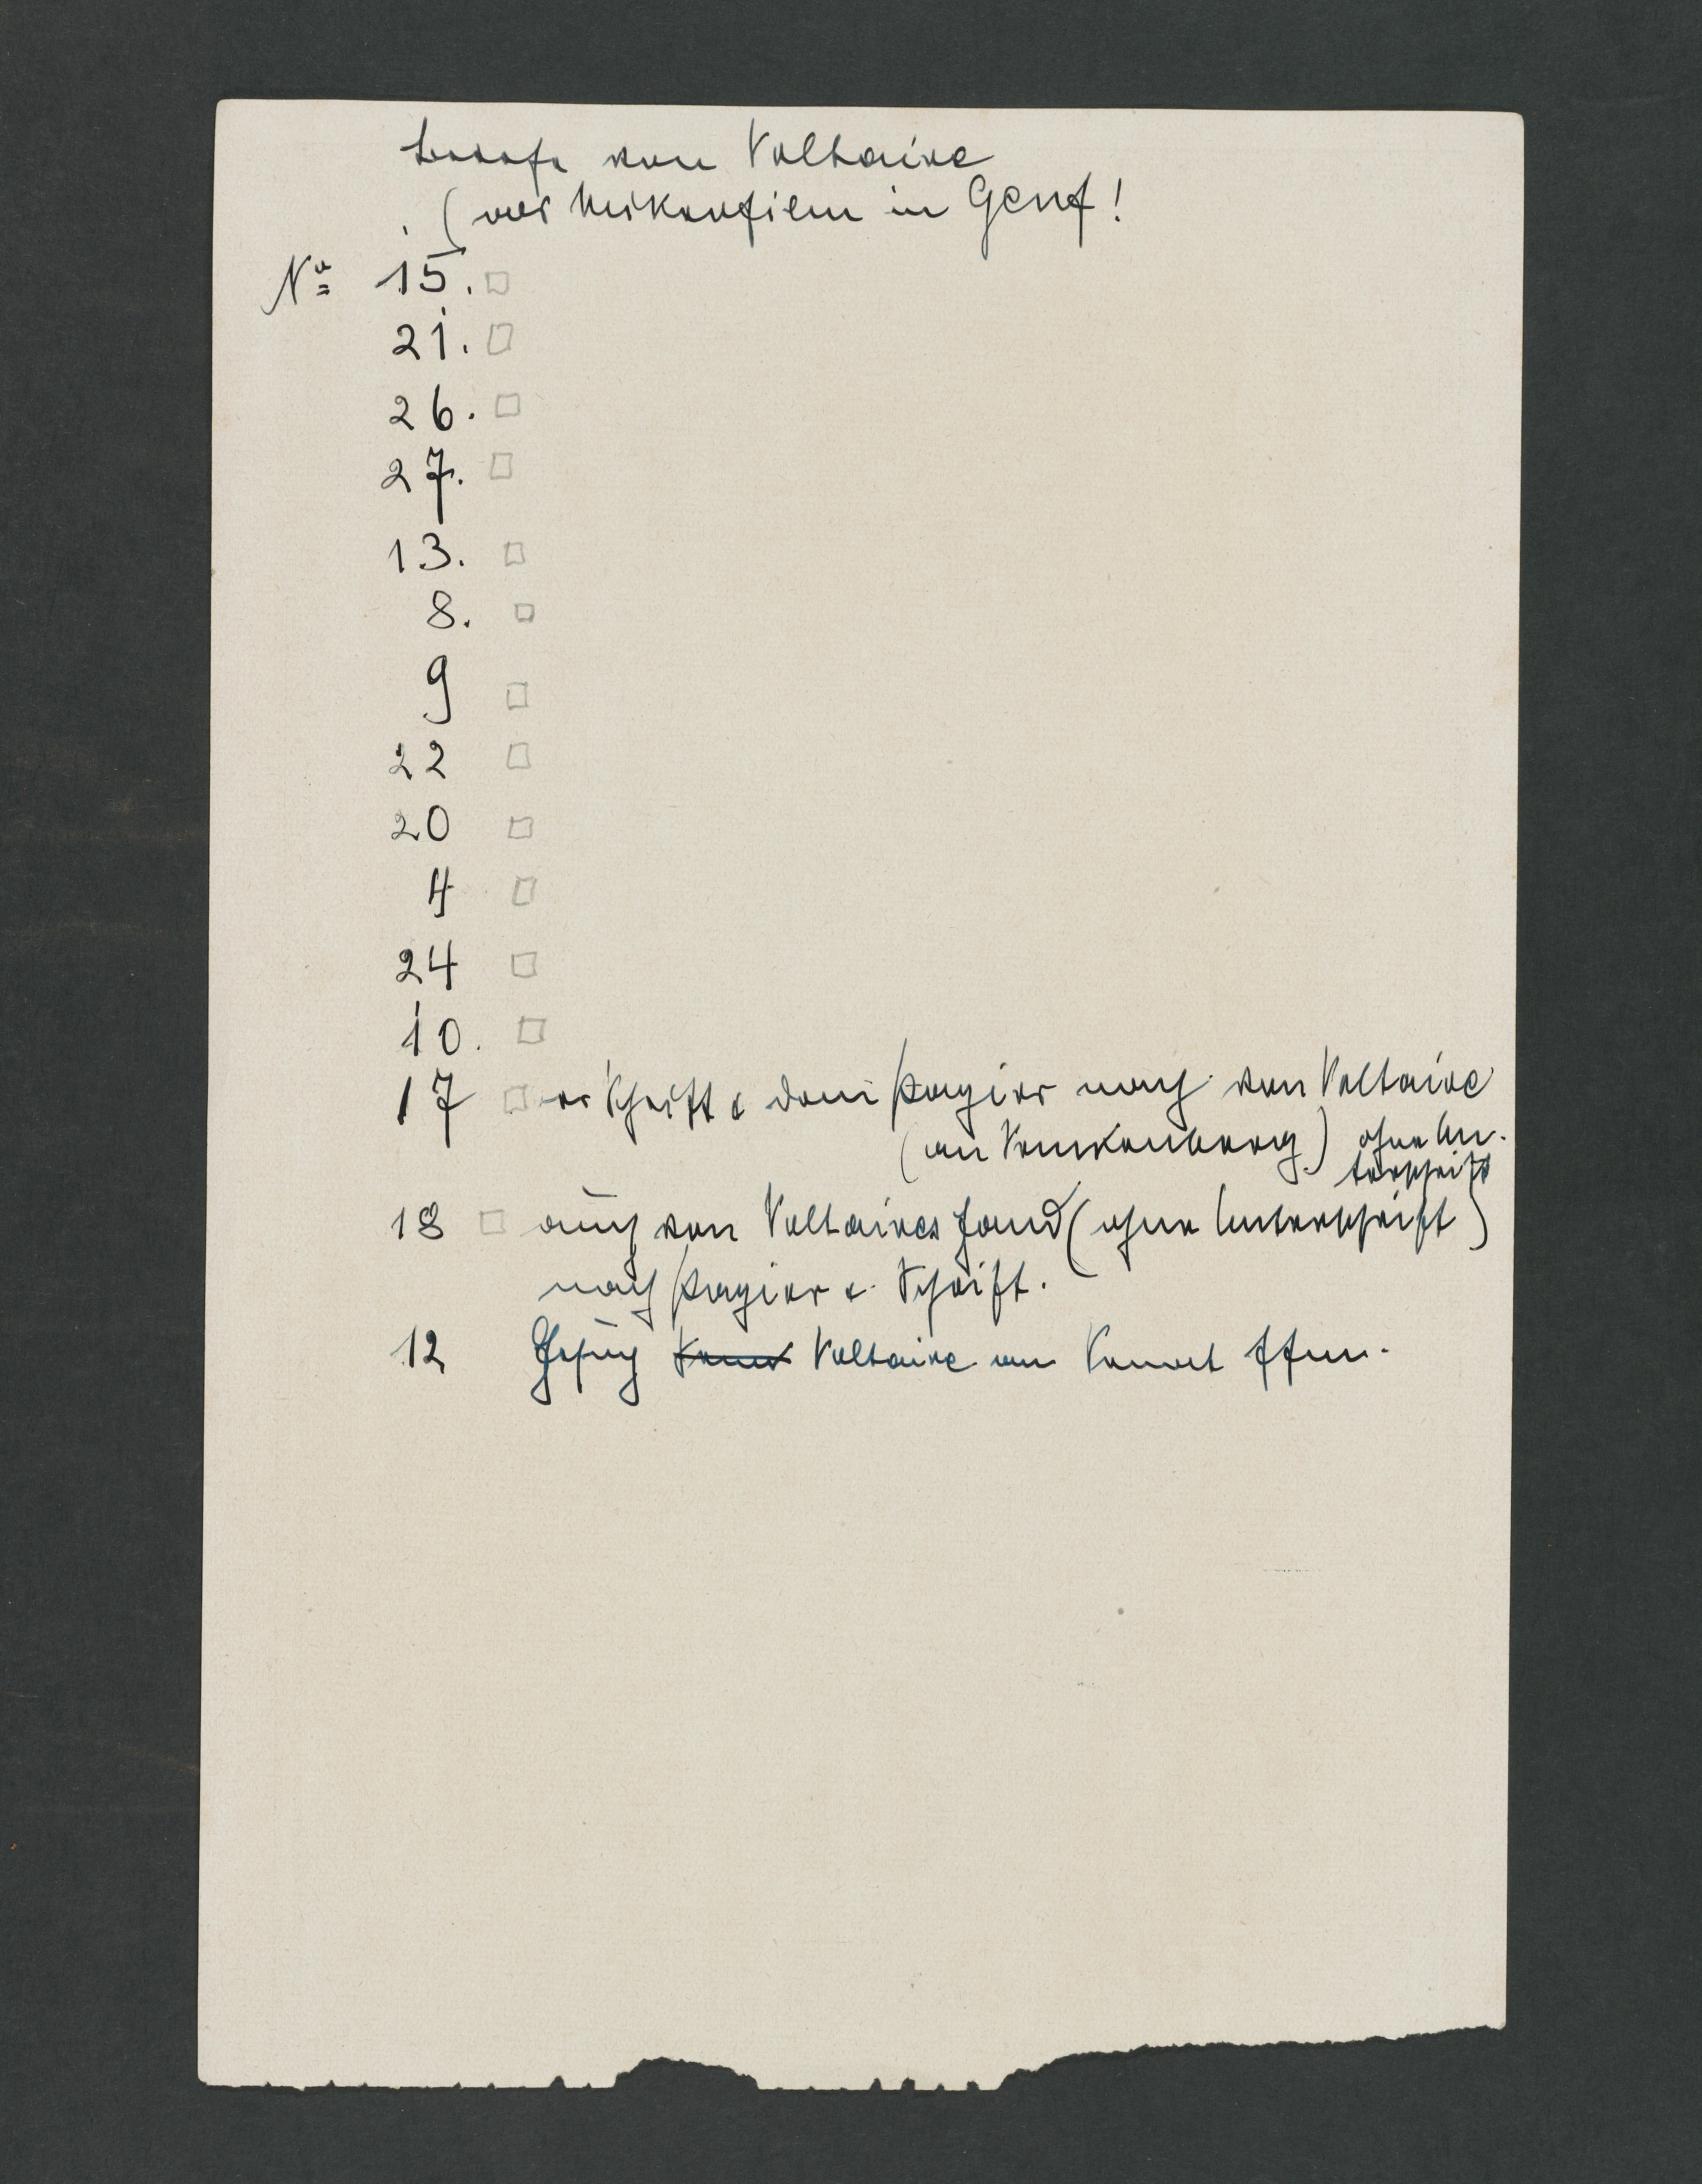 Briefe von Voltaire
(als Mikrofilm in Genf!
Nº 15. □
21. □
26. □
27. □
13. □
8. □
9 □
22 □
20 □
4 □
24 □
10. □
17 □ der Schrift & dem Papier nach von Voltaire
(an Venkenberg) ohne Un-
terschrift
18 □ auch von Voltaires Hand (ohne Unterschrift)
nach Papier & Schrift.
12 Voltaire an